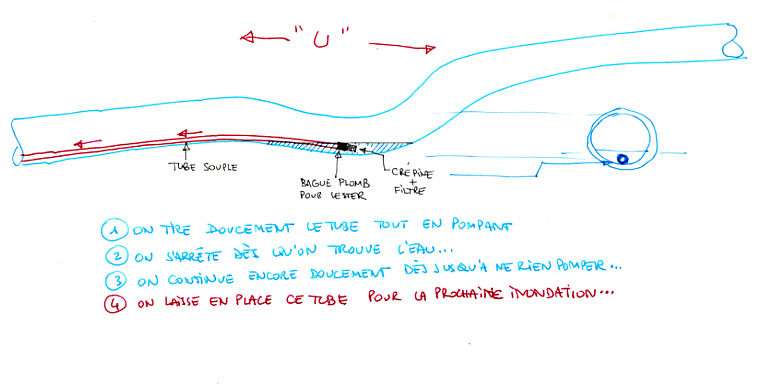 "U"
TUBE SOUPLE
BAGUE PLOMB
POUR LESTER
CRÉPINE
+
FILTRE
1 ON TIRE DOUCEMENT LE TUBE TOUT EN POMPANT
2 ON S'ARRÊTE DÈS QU'ON TROUVE L'EAU...
3 ON CONTINUE ENCORE DOUCEMENT DÈS JUSQU'A NE RIEN POMPER...
4 ON LAISSE EN PLACE CE TUBE POUR LA PROCHAINE INONDATION...